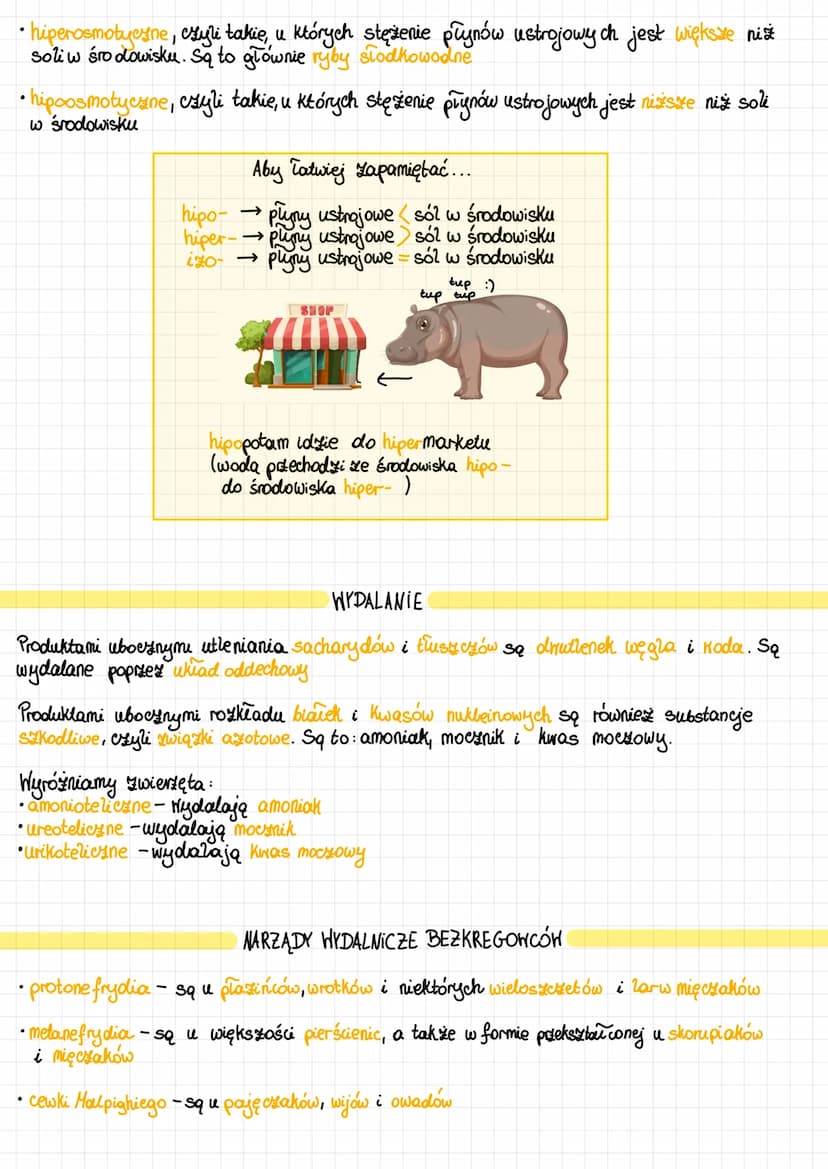 • hiperosmotyczne, czyli takie, u których stężenie płynów ustrojowych jest większe niż
soli w środowisku. Są to głównie ryby słodkowodne
• hipoosmotyczne, czyli takie, u których stężenie płynów ustrojowych jest niższe niż soli
w środowisku
Aby łatwiej zapamiętać...
hipo- → płyny ustrojowe < sól w środowisku
hiper- → płyny ustrojowe > sól w środowisku
izo- → płyny ustrojowe = sól w środowisku
tup :)
tup tup
SHOP
hipopotam idzie do hipermarketu
(woda przechodzi ze środowiska hipo-
do środowiska hiper- )
WYDALANIE
Produktami ubocznymi utleniania sacharydów i tłuszczów są dwutlenek węgla i woda. Są
wydalane poprzez układ oddechowy
Produktami ubocznymi rozkładu białek i kwasów nukleinowych są również substancje
szkodliwe, czyli związki azotowe. Są to: amoniak, mocznik i kwas moczowy.
Wyróżniamy zwierzęta:
• amonioteliczne - wydalają amoniak
• ureoteliczne - wydalają mocznik
• urikoteliczne - wydalają kwas moczowy
NARZĄDY WYDALNICZE BEZKRĘGOWCÓW
• protonefrydia - są u płazińców, wrotków i niektórych wieloszczetów i larw mięczaków
• metanefrydia - są u większości pierścienic, a także w formie przekształconej u skorupiaków
i mięczaków
• cewki Malpighiego - są u pajęczaków, wijów i owadów